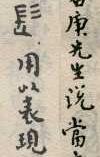 庚先生说當
用以表現